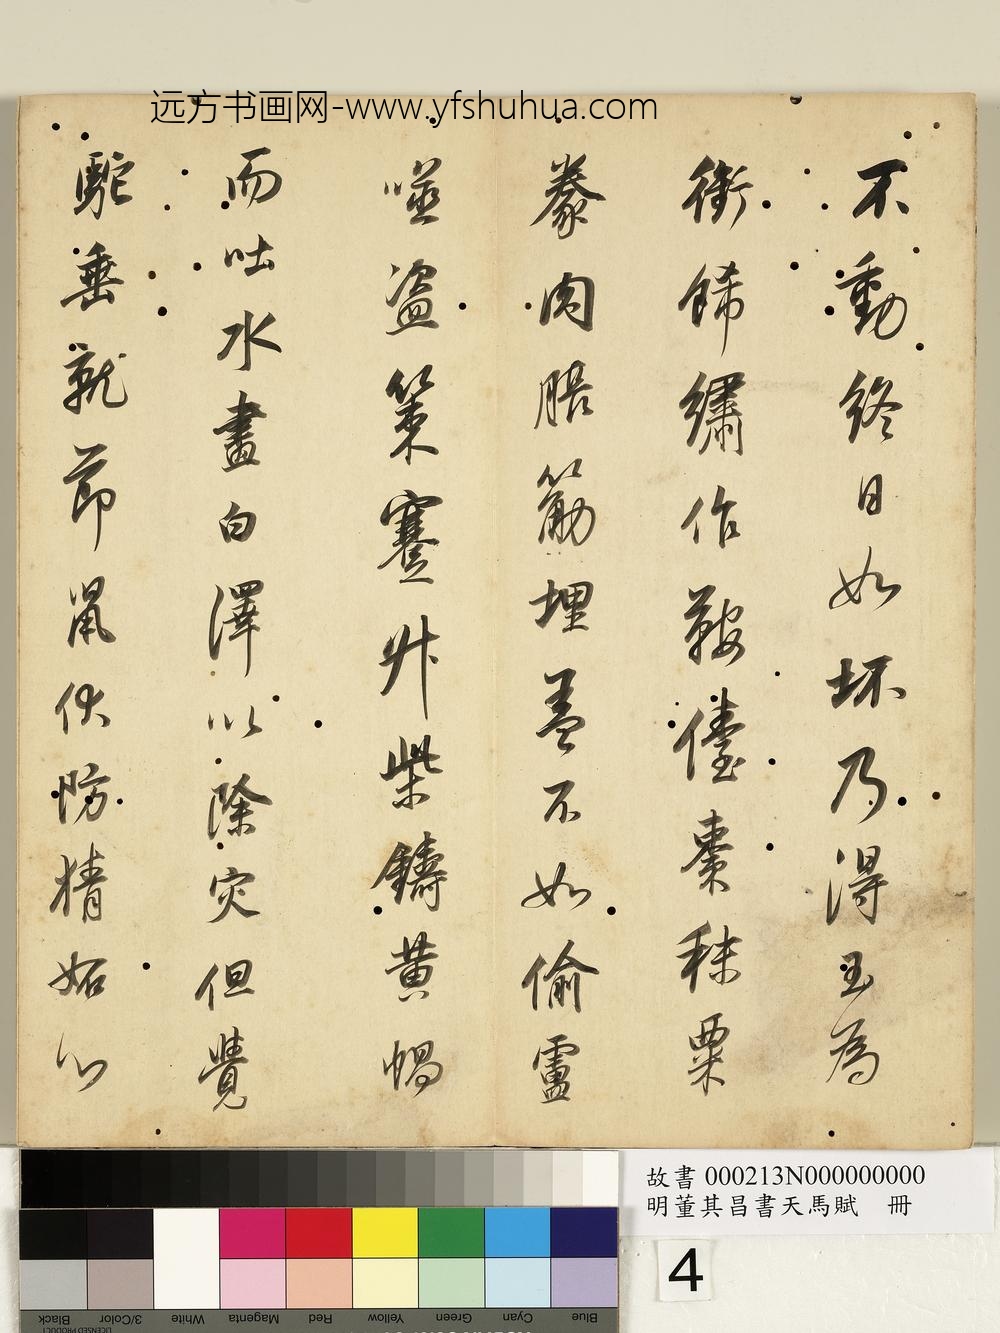 远方书画网-www.yfshuhua.com
不動終日如坏乃得玉為
銜餙繡作鞍儓棗秣粟
豢肉筋埋盖不如偷盧
噬盗策蹇升柴鑄黄蝸
而吐水畫白澤以除灾但覺
駝垂就節鼠伏防猜妬心
故書 000213N000000000
明董其昌書天馬賦 冊
4
Black
3/Color
White
Magenta
Red
Yellow
Green
Cyan
Blue
LICENSED PRODUCT